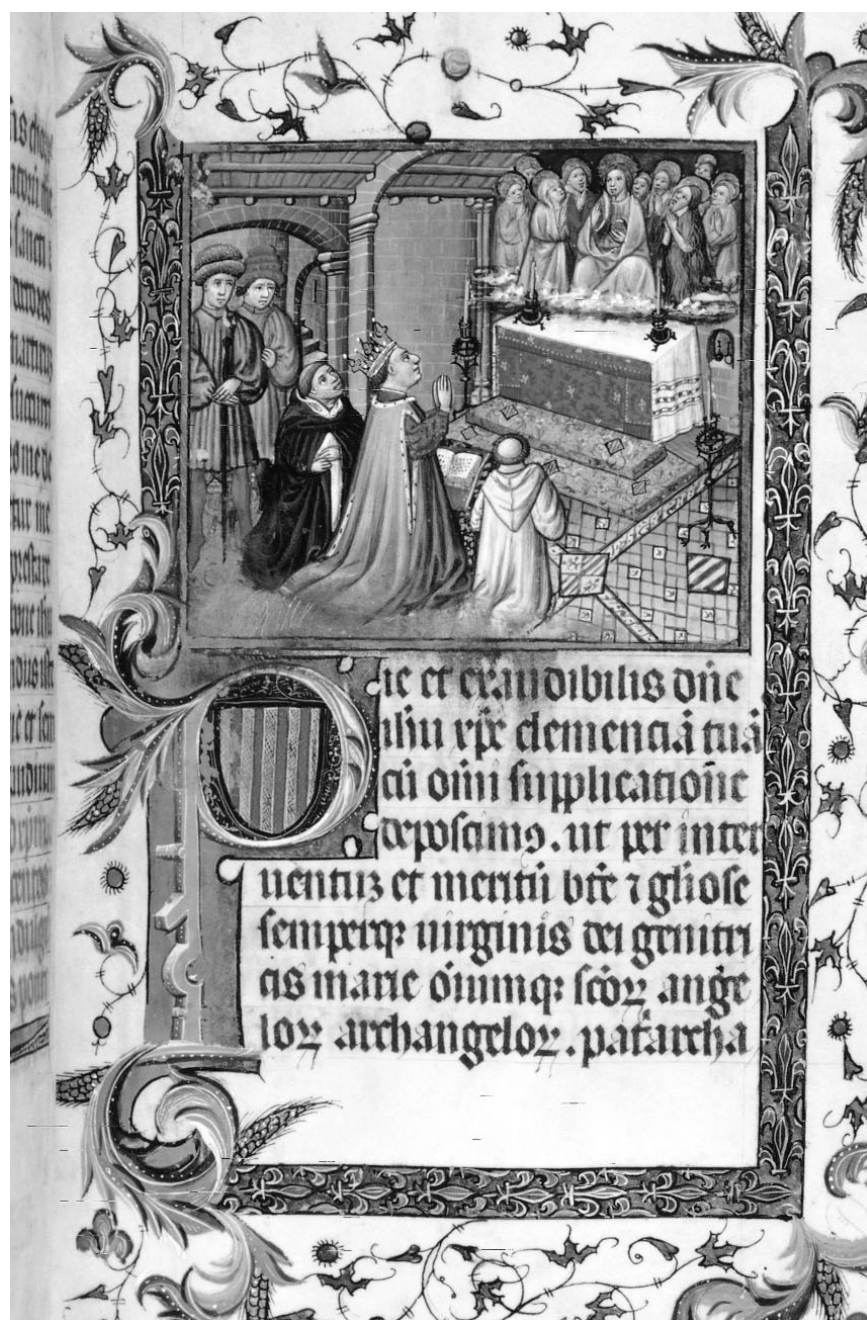 Pie et exaudibilis dn̄e
ih̄u xp̄e clemenciā tuā
cū om̄i supplicatiōne
deposcimꝯ . ut per inter
uentuꝫ et meritū bt̄e ⁊ gl̄iose
semperqꝫ uirginis dei genitri
cis marie om̄iumqꝫ sc̄oꝝ ange
loꝝ archangeloꝝ . pat̄archa